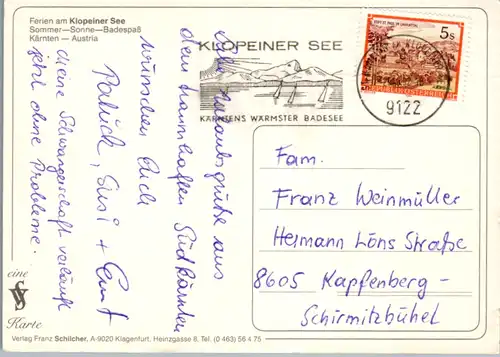 Ferien am Klopeiner See
Sommer—Sonne—Badespaß
Kärnten — Austria
KLOPEINER SEE
KÄRNTENS WÄRMSTER BADESEE
5s
REPUBLIK ÖSTERREICH
9122
Urlaubsgrüße aus
dem traumhaften Südkärnten
wünschen Euch
Patrick, Susi + Gerut
Meine Schwangerschaft verläuft
jetzt ohne Probleme.
Fam.
Franz Weinmüller
Hermann Löns Straße
8605 Kapfenberg-
Schirmitzbühel
eine
Karte
Verlag Franz Schilcher, A-9020 Klagenfurt, Heinzgasse 8. Tel. (0 463) 56 4 75